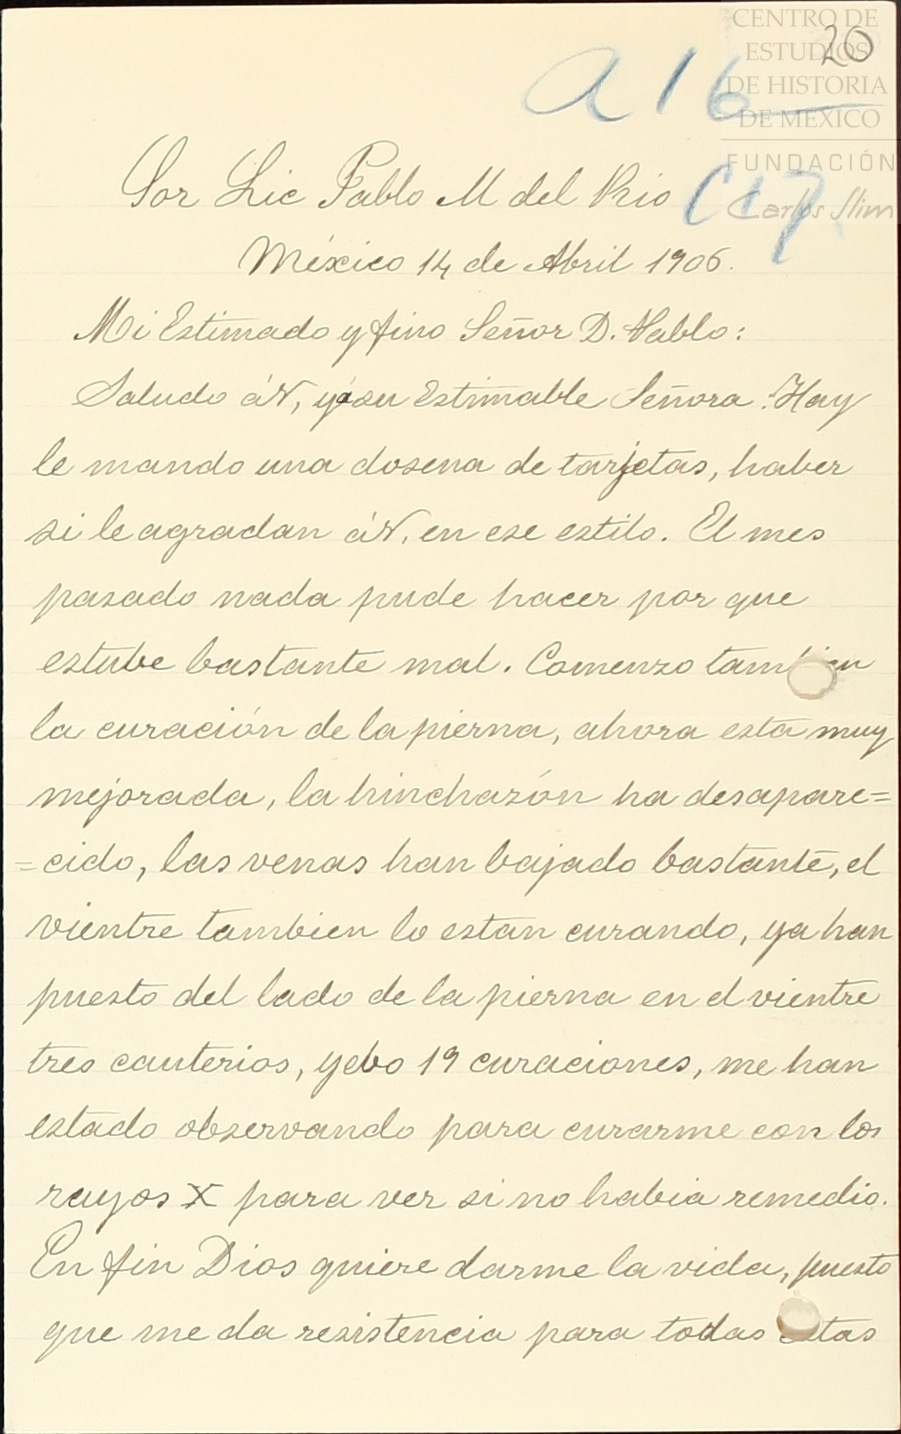 CENTRO DE
ESTUDIOS
DE HISTORIA
DE MEXICO
FUNDACIÓN
Carlos Slim
20
a 16
C 17.
Sor Lic Pablo M del Rio
México 14 de Abril 1906.
Mi Estimado y fino Señor D. Pablo:
Saludo á V, y á su Estimable Señora. Hay
le mando una dosena de tarjetas, haber
si le agradan á V. en ese estilo. El mes
pasado nada pude hacer por que
estube bastante mal. Comenzo tambien
la curación de la pierna, ahora esta muy
mejorada, la hinchazón ha desapare=
=cido, las venas han bajado bastante, el
vientre tambien lo estan curando, ya han
puesto del lado de la pierna en el vientre
tres cauterios, yebo 19 curaciones, me han
estado observando para curarme con los
rayos X para ver si no habia remedio.
En fin Dios quiere darme la vida, puesto
que me da resistencia para todas estas